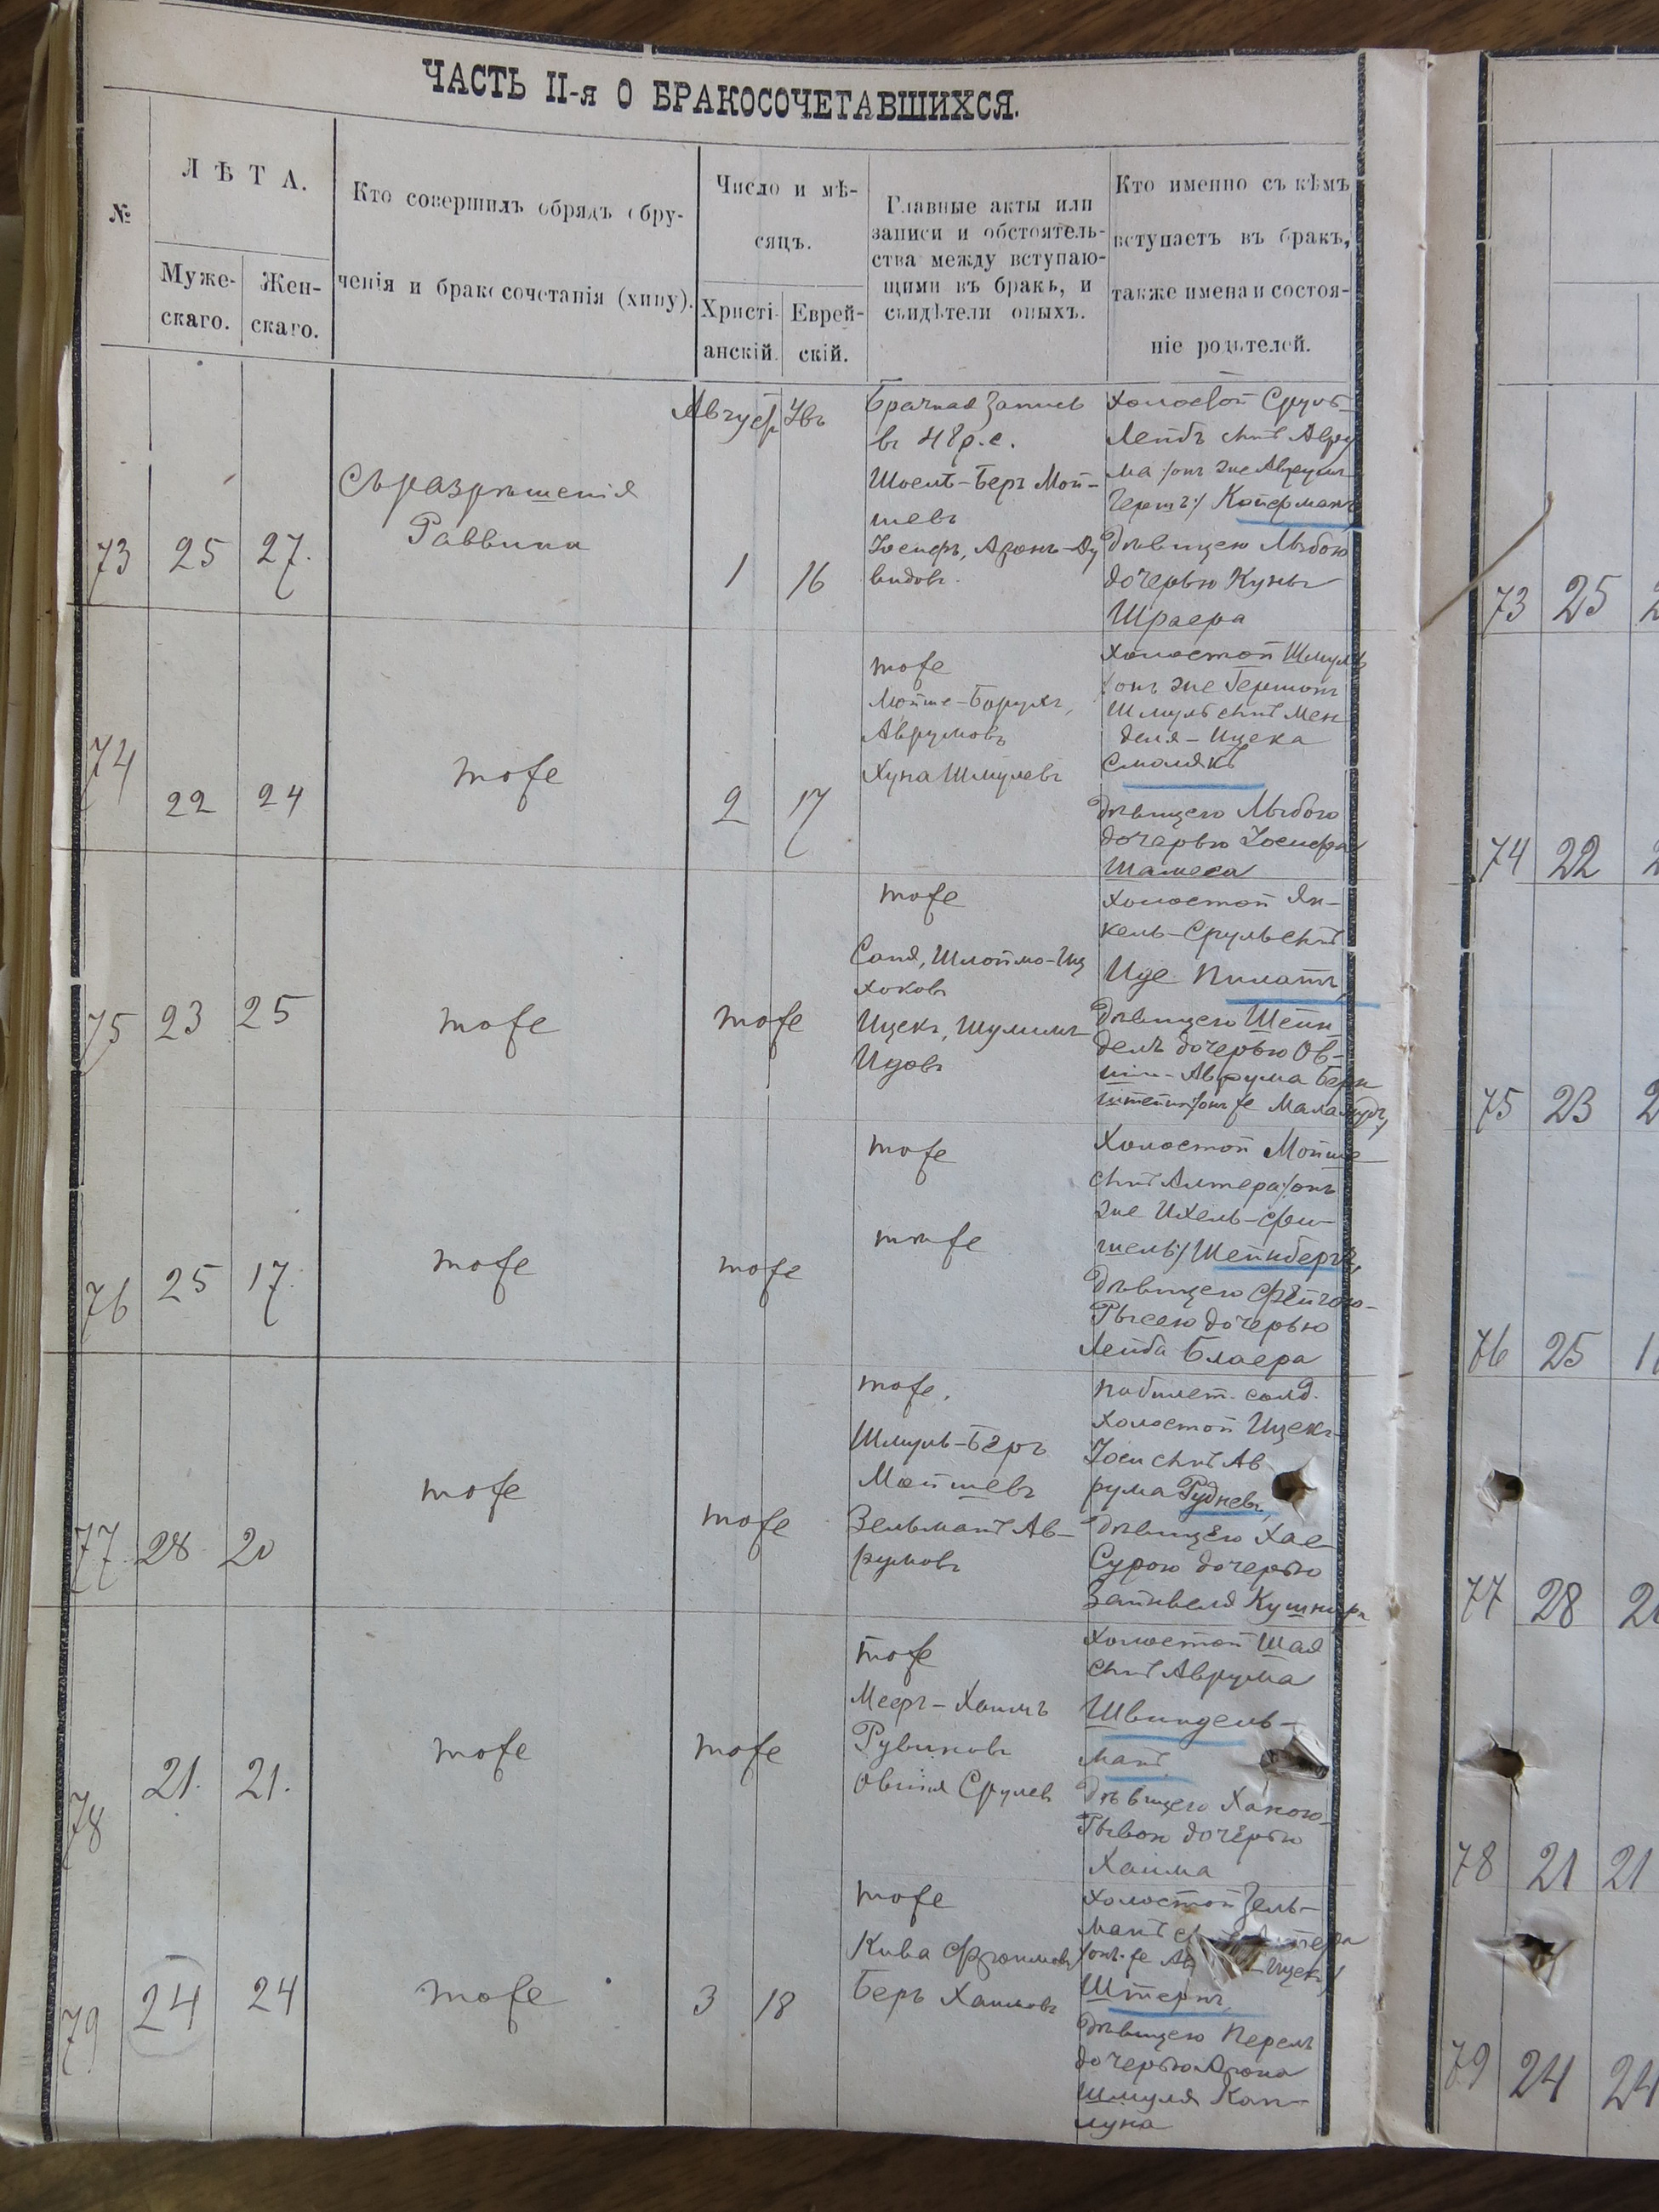 ЧАСТЬ II-я О БРАКОСОЧЕТАВШИХСЯ.
№
ЛѢТА.
Муже-
скаго.
Жен-
скаго.
Кто совершилъ обрядъ обру-
ченія и бракосочетанія (хипу).
Число и мѣ-
сяцъ.
Христі-
анскій.
Еврей-
скій.
Главные акты или
записи и обстоятель-
ства между вступаю-
щими въ бракъ, и
свидѣтели оныхъ.
Кто именно съ кѣмъ
вступаетъ въ бракъ,
также имена и состоя-
ніе родителей.
73
25
27.
Съ разрѣшенія
Раввина
Август
Увъ
1
16
Брачная запись
въ 48 р. с.
Шоелъ-Беръ Мой-
шевъ
Іосифъ, Аронъ-Ду
видовъ.
Холостой Сруль
Лейбъ сынъ Авру
ма /онъ же Аврумъ
Гершъ:/ Койерманъ
дѣвицею Лыбою
дочерью Куны
Шраера
74
22
24
тоже
2
17
тоже
Мойше-Борухъ,
Аврумовъ
Хуна Шмулевъ
Холостой Шмуль
/онъ же Гершонъ
Шмуль сынъ Мен
деля-Ицека
Смолякъ
дѣвицею Лыбою
дочерью Іосифа
Шамеса
75
23
25
тоже
тоже
тоже
Саня, Шлоймо-Иц
хоковъ
Ицекъ, Шулимъ
Идовъ
Холостой Ян-
кель-Сруль сынъ
Иде Пилатъ,
Дѣвицею Шейн
делъ дочерью Ов-
шии-Аврума Берн
штейнъ /онъ же Маламудъ/
76
25
17.
тоже
тоже
тоже
тоже
Холостой Мойше
сынъ Алтера /онъ
же Ихель-Фи-
шель:/ Шейнбергъ,
Дѣвицею Фейгою-
Рысею дочерью
Лейба Блаера
77
28
20
тоже
тоже
тоже.
Шмуль-Беръ
Мойшевъ
Зельманъ Ав-
румовъ
по билет. солд.
Холостой Ицекъ-
Іоси сынъ Ав
рума Рудневъ,
Дѣвицею Хае-
Сурою дочерью
Зейнвеля Кушнира
78
21.
21.
тоже
тоже
тоже
Мееръ-Хаимъ
Рувиновъ
Овшия Срулев
Холостой Шая
сынъ Аврума
Швиндель-
манъ
Дѣвицею Ханою-
Рывою дочерью
Хаима
79
24
24
тоже
3
18
тоже
Кива Фроимовъ
Беръ Хаимовъ
Холостой Зель-
манъ
/онъ же Ицекъ/
Штернъ,
дѣвицею Перелъ
дочерью Арона
Шмуля Кап-
луна
73
25
74
22
75
23
76
25
77
28
78
21
21
79
24
24